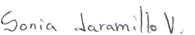 Sonia Jaramillo V.